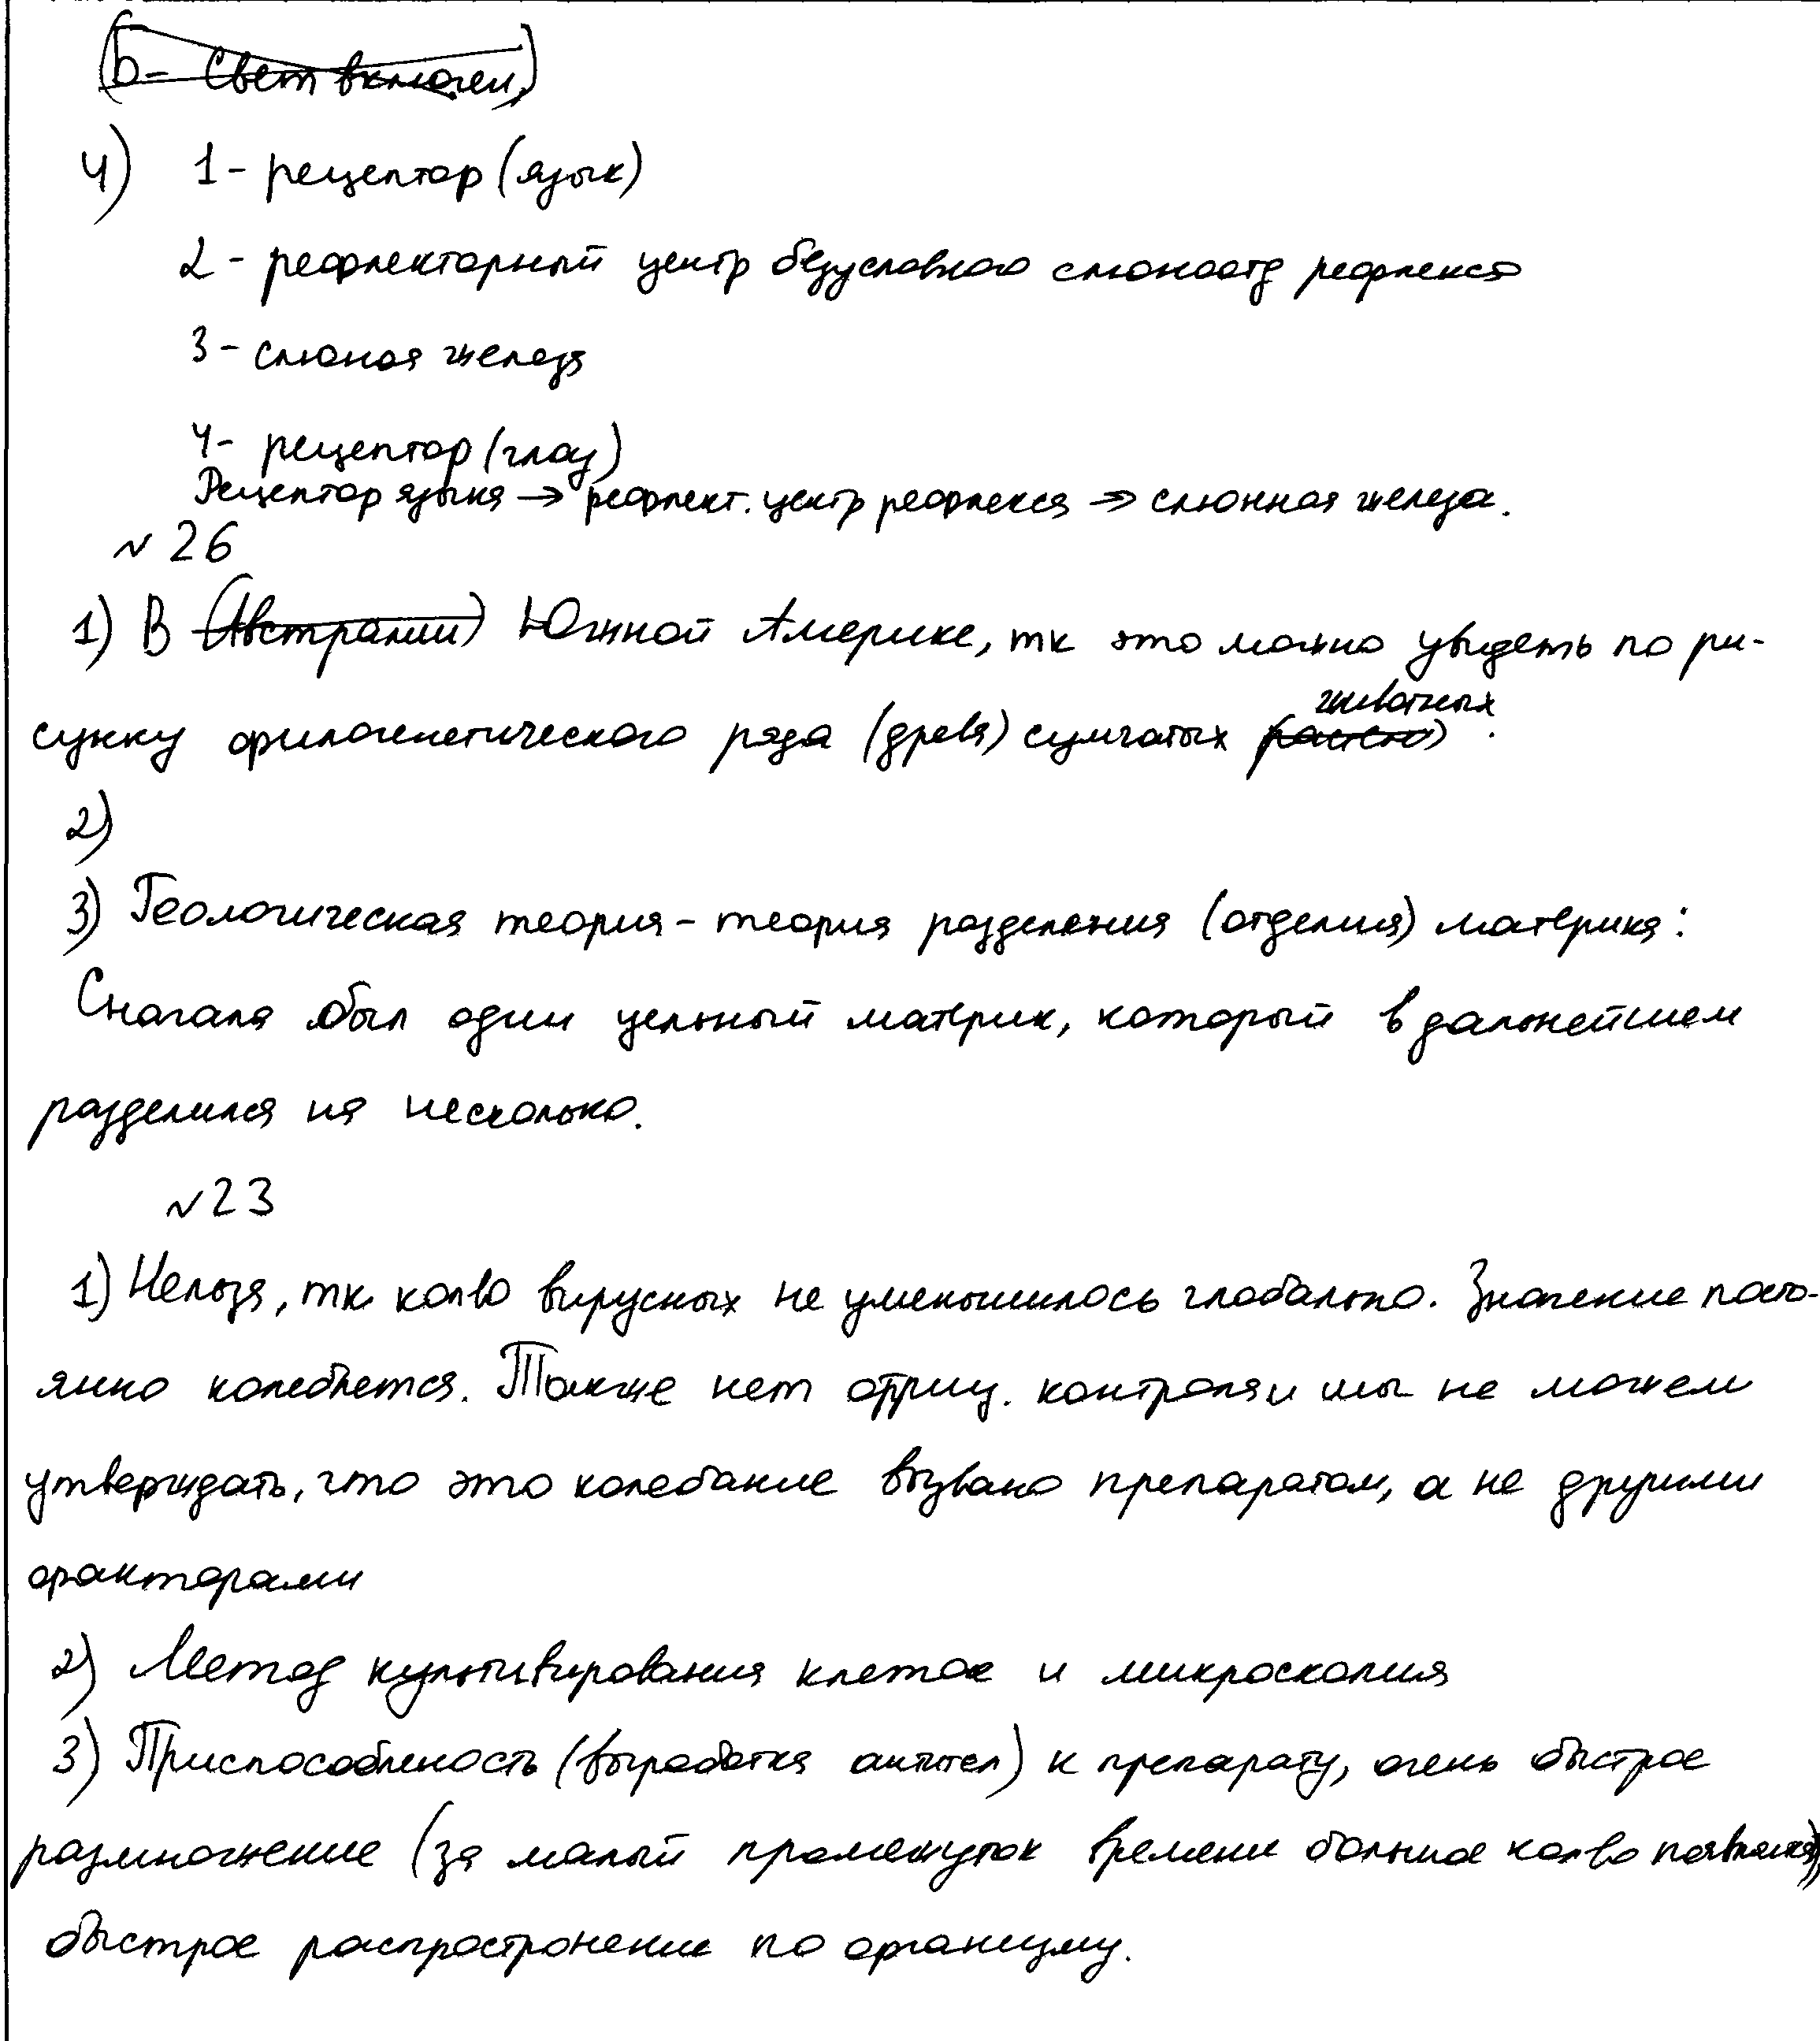 (Б- Свет включен,)
4) 1- рецептор (язык)
2 - рефлекторный центр безусловного слюноотд рефлекса
3 - слюная железа
4- рецептор (глаз)
Рецептор языка → рефлект. центр рефлекса → слюнная железа.
№ 26
1) В (Австралии) Южной Америке, тк это можно увидеть по ри-
сунку филогенетического ряда (древа) сумчатых животных.
2)
3) Геологическая теория - теория разделения (отделия) материка:
Сначала был один цельный материк, который в дальнейшем
разделился на несколько.
№23
1) Нельзя, тк кол-во вирусных не уменьшилось глобально. Значение посто-
янно колеблется. Также нет отриц. контроля и мы не можем
утверждать, что это колебание вызвано препаратом, а не другими
факторами
2) Метод культивирования клеток и микроскопия
3) Приспособленость (выработка антител) к препарату, очень быстрое
размножение (за малый промежуток времени большое кол-во появляется)
быстрое распростронение по организму.